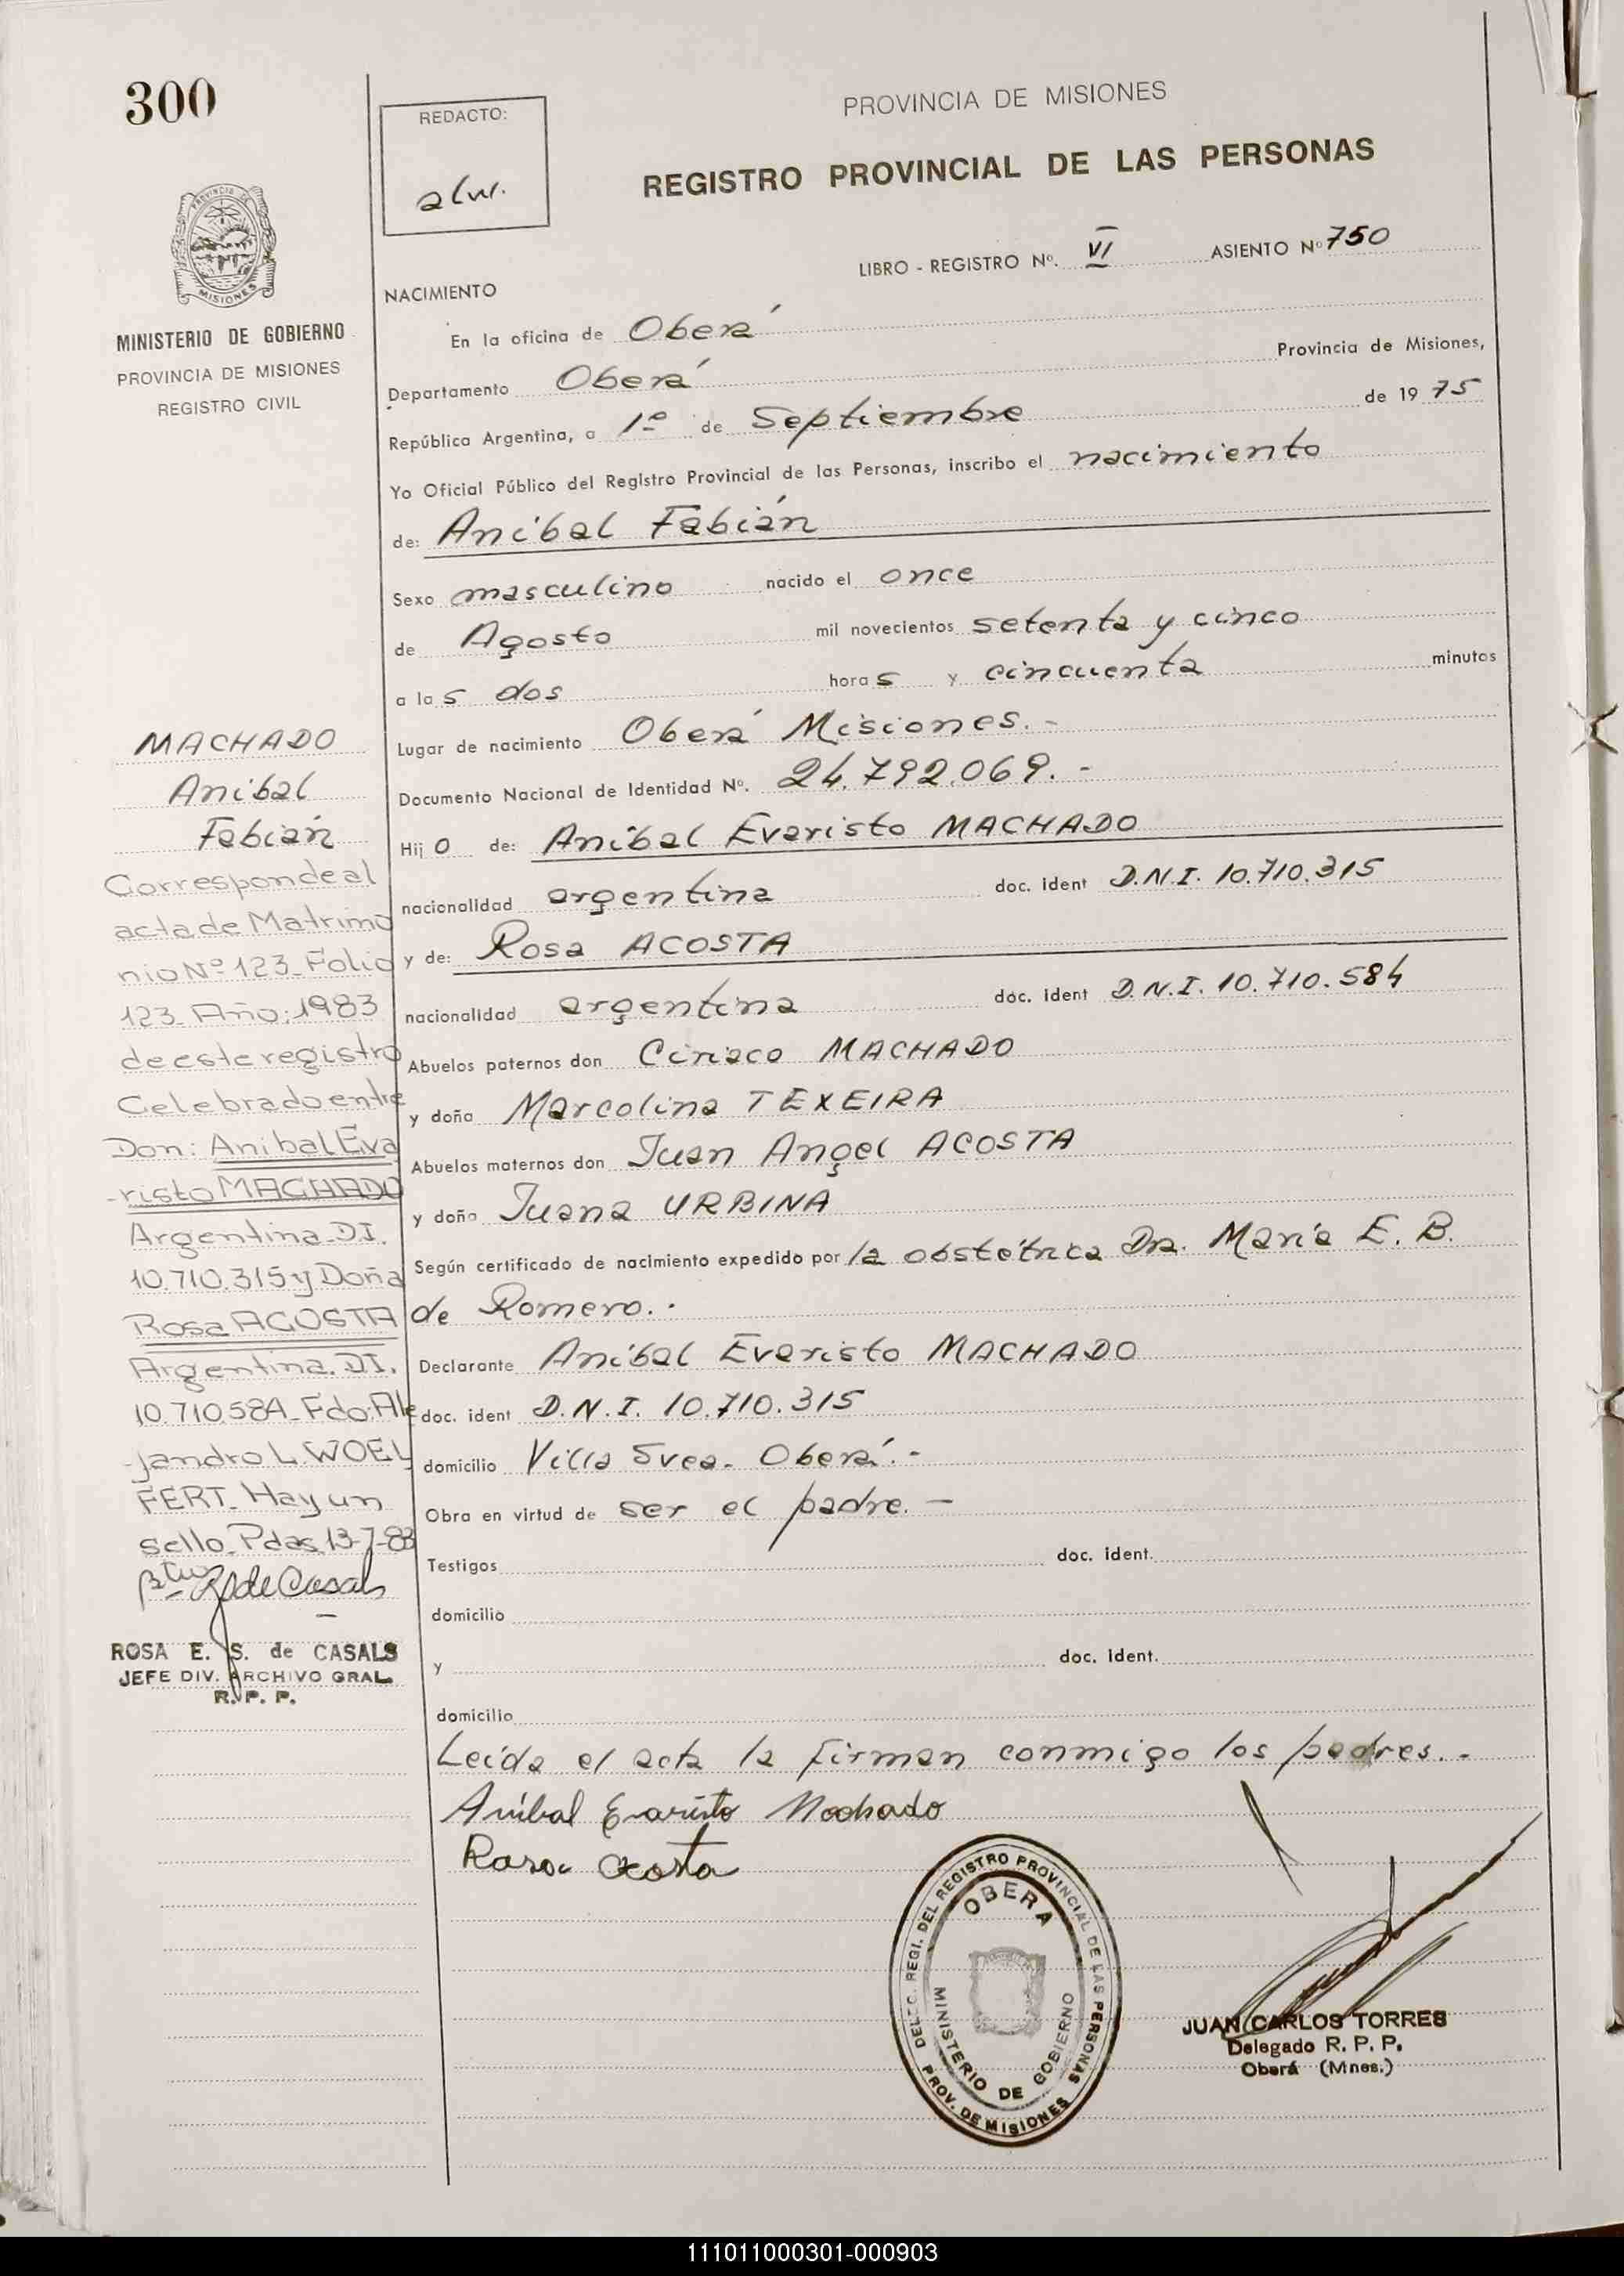 300
PROVINCIA DE MISIONES
MINISTERIO DE GOBIERNO
PROVINCIA DE MISIONES
REGISTRO CIVIL
MACHADO
Anibal
Fabián
Corresponde al
acta de Matrimo
nio Nº 123_Folio
123_Año:1983
de este registro
Celebrado entre
Don: Anibal Eva
-risto MACHADO
Argentina_DI.
10.710.315 y Doña
Rosa ACOSTA
Argentina. DI.
10.710.584_Fdo:Ale
-jandro L. WOEL
FERT_Hay un
sello_Pdas 13-7-83
de Casals
ROSA E. S. de CASALS
JEFE DIV. ARCHIVO GRAL.
R. P. P.
REDACTO:
PROVINCIA DE MISIONES
REGISTRO PROVINCIAL DE LAS PERSONAS
LIBRO - REGISTRO Nº. VI ASIENTO Nº 750
NACIMIENTO
En la oficina de Oberá
Departamento Oberá Provincia de Misiones,
República Argentina, a 1º de Septiembre de 1975
Yo Oficial Público del Registro Provincial de las Personas, inscribo el nacimiento
de: Aníbal Fabián
Sexo masculino nacido el once
de Agosto mil novecientos setenta y cinco
a las dos horas y cincuenta minutos
Lugar de nacimiento Oberá Misiones.-
Documento Nacional de Identidad Nº. 24.792.069.-
Hijo de: Aníbal Evaristo MACHADO
nacionalidad argentina doc. ident D.N.I. 10.710.315
y de: Rosa ACOSTA
nacionalidad argentina doc. ident D.N.I. 10.710.584
Abuelos paternos don Ciriaco MACHADO
y doña Marcolina TEXEIRA
Abuelos maternos don Juan Angel ACOSTA
y doña Juana URBINA
Según certificado de nacimiento expedido por la obstétrica Dra. María E. B.
de Romero.-
Declarante Aníbal Evaristo MACHADO
doc. ident D.N.I. 10.710.315
domicilio Villa Svea- Oberá.-
Obra en virtud de ser el padre.-
Testigos doc. ident.
domicilio
y doc. ident.
domicilio
Leída el acta la firman conmigo los padres.-
Aníbal Evaristo Machado
Rosa Acosta
DELEG. REGI. DEL REGISTRO PROVINCIAL DE LAS PERSONAS
PROV. DE MISIONES
OBERA
MINISTERIO DE GOBIERNO
JUAN CARLOS TORRES
Delegado R. P. P.
Oberá (Mnes.)
111011000301-000903